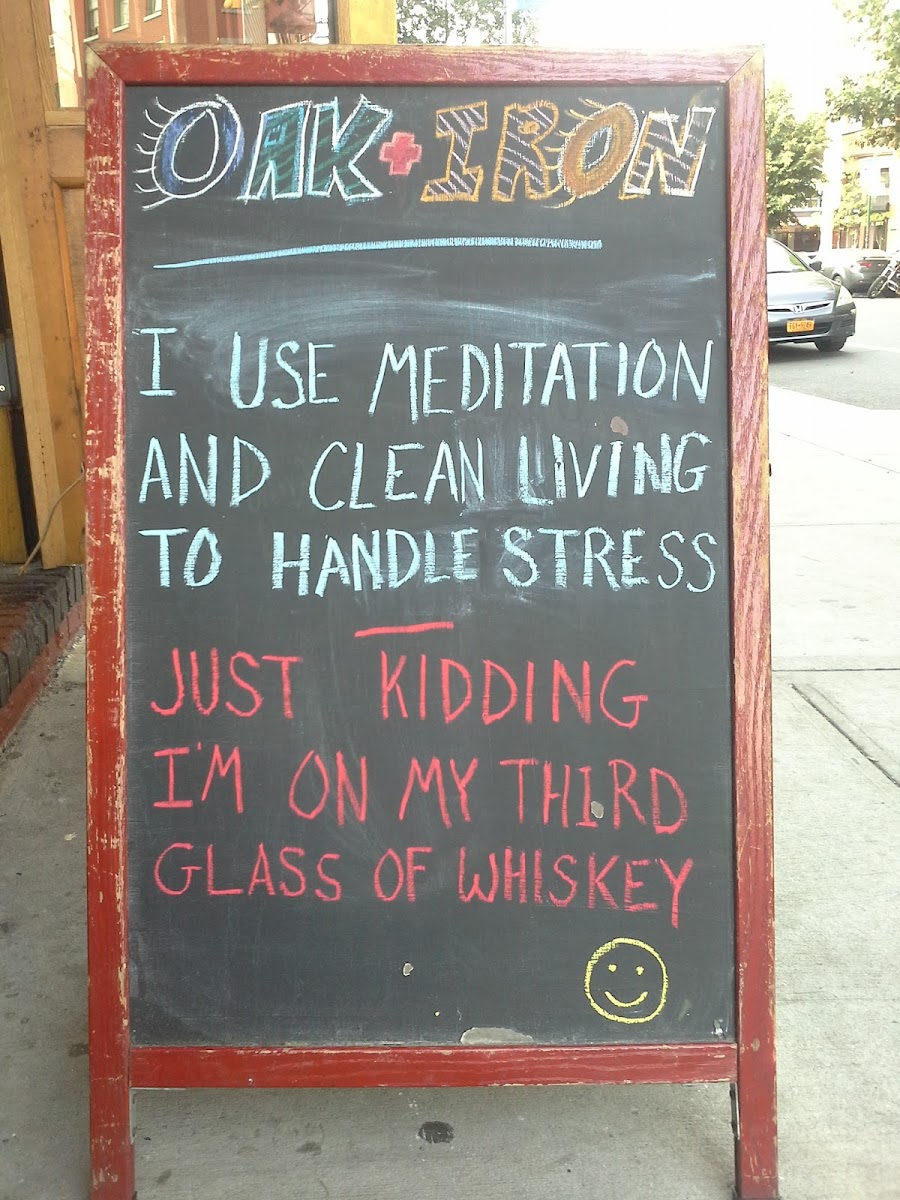 OAK + IRON
I USE MEDITATION
AND CLEAN LIVING
TO HANDLE STRESS
JUST KIDDING
I'M ON MY THIRD
GLASS OF WHISKEY